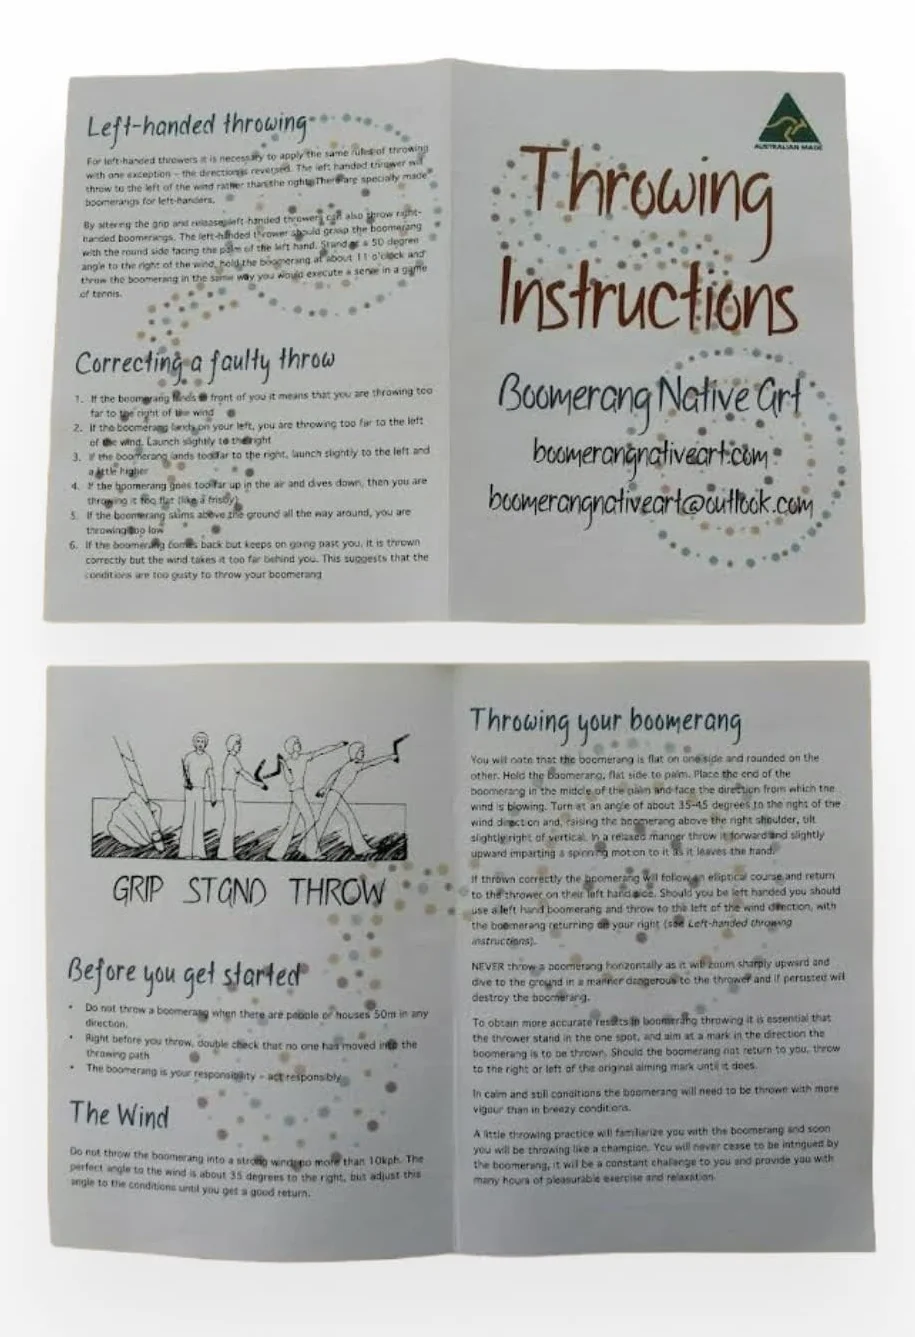 Left-handed throwing
For left-handed throwers it is necessary to apply the same rules of throwing
with one exception – the direction is reversed. The left handed thrower will
throw to the left of the wind rather than the right. There are specially made
boomerangs for left-handers.
By altering the grip and release, left-handed throwers can also throw right-
handed boomerangs. The left-handed thrower should grasp the boomerang
with the round side facing the palm of the left hand. Stand at a 50 degree
angle to the right of the wind, hold the boomerang at about 11 o'clock and
throw the boomerang in the same way you would execute a serve in a game
of tennis.
Correcting a faulty throw
1. If the boomerang lands in front of you it means that you are throwing too
far to the right of the wind
2. If the boomerang lands on your left, you are throwing too far to the left
of the wind. Launch slightly to the right
3. If the boomerang lands too far to the right, launch slightly to the left and
a little higher
4. If the boomerang goes too far up in the air and dives down, then you are
throwing it too flat (like a frisby)
5. If the boomerang skims above the ground all the way around, you are
throwing too low
6. If the boomerang comes back but keeps on going past you, it is thrown
correctly but the wind takes it too far behind you. This suggests that the
conditions are too gusty to throw your boomerang
AUSTRALIAN MADE
Throwing
Instructions
Boomerang Native Art
boomerangnativeart.com
boomerangnativeart@outlook.com
GRIP STAND THROW
Before you get started
• Do not throw a boomerang when there are people or houses 50m in any
direction.
• Right before you throw, double check that no one has moved into the
throwing path
• The boomerang is your responsibility – act responsibly
The Wind
Do not throw the boomerang into a strong wind, no more than 10kph. The
perfect angle to the wind is about 35 degrees to the right, but adjust this
angle to the conditions until you get a good return.
Throwing your boomerang
You will note that the boomerang is flat on one side and rounded on the
other. Hold the Boomerang, flat side to palm. Place the end of the
boomerang in the middle of the palm and face the direction from which the
wind is blowing. Turn at an angle of about 35-45 degrees to the right of the
wind direction and, raising the boomerang above the right shoulder, tilt
slightly right of vertical. In a relaxed manner throw it forward and slightly
upward imparting a spinning motion to it as it leaves the hand.
If thrown correctly the boomerang will follow an elliptical course and return
to the thrower on their left hand side. Should you be left handed you should
use a left hand boomerang and throw to the left of the wind direction, with
the boomerang returning on your right (see Left-handed throwing
instructions).
NEVER throw a boomerang horizontally as it will zoom sharply upward and
dive to the ground in a manner dangerous to the thrower and if persisted will
destroy the boomerang.
To obtain more accurate results in boomerang throwing it is essential that
the thrower stand in the one spot, and aim at a mark in the direction the
boomerang is to be thrown. Should the boomerang not return to you, throw
to the right or left of the original aiming mark until it does.
In calm and still conditions the boomerang will need to be thrown with more
vigour than in breezy conditions.
A little throwing practice will familiarize you with the boomerang and soon
you will be throwing like a champion. You will never cease to be intrigued by
the boomerang, it will be a constant challenge to you and provide you with
many hours of pleasurable exercise and relaxation.